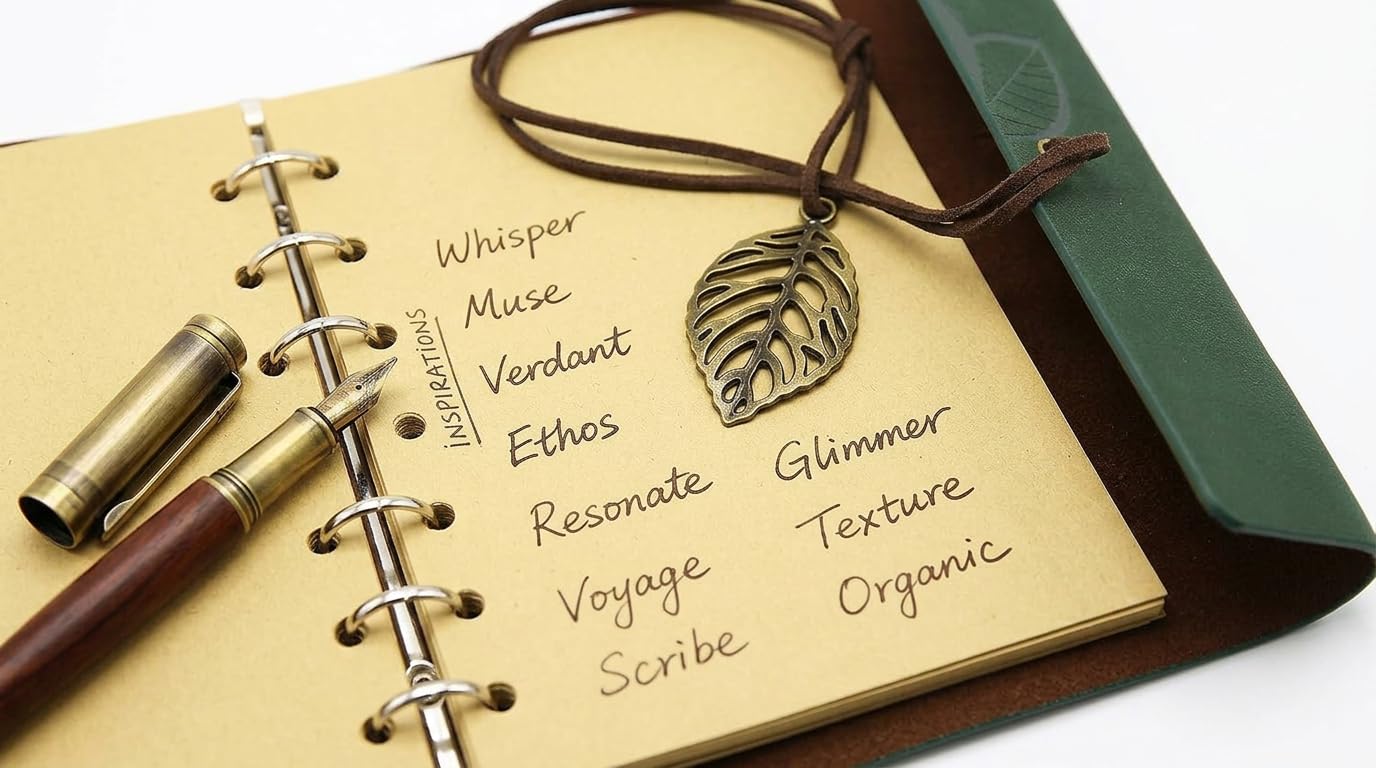 INSPIRATIONS
Whisper
Muse
Verdant
Ethos
Resonate
Voyage
Scribe
Glimmer
Texture
Organic